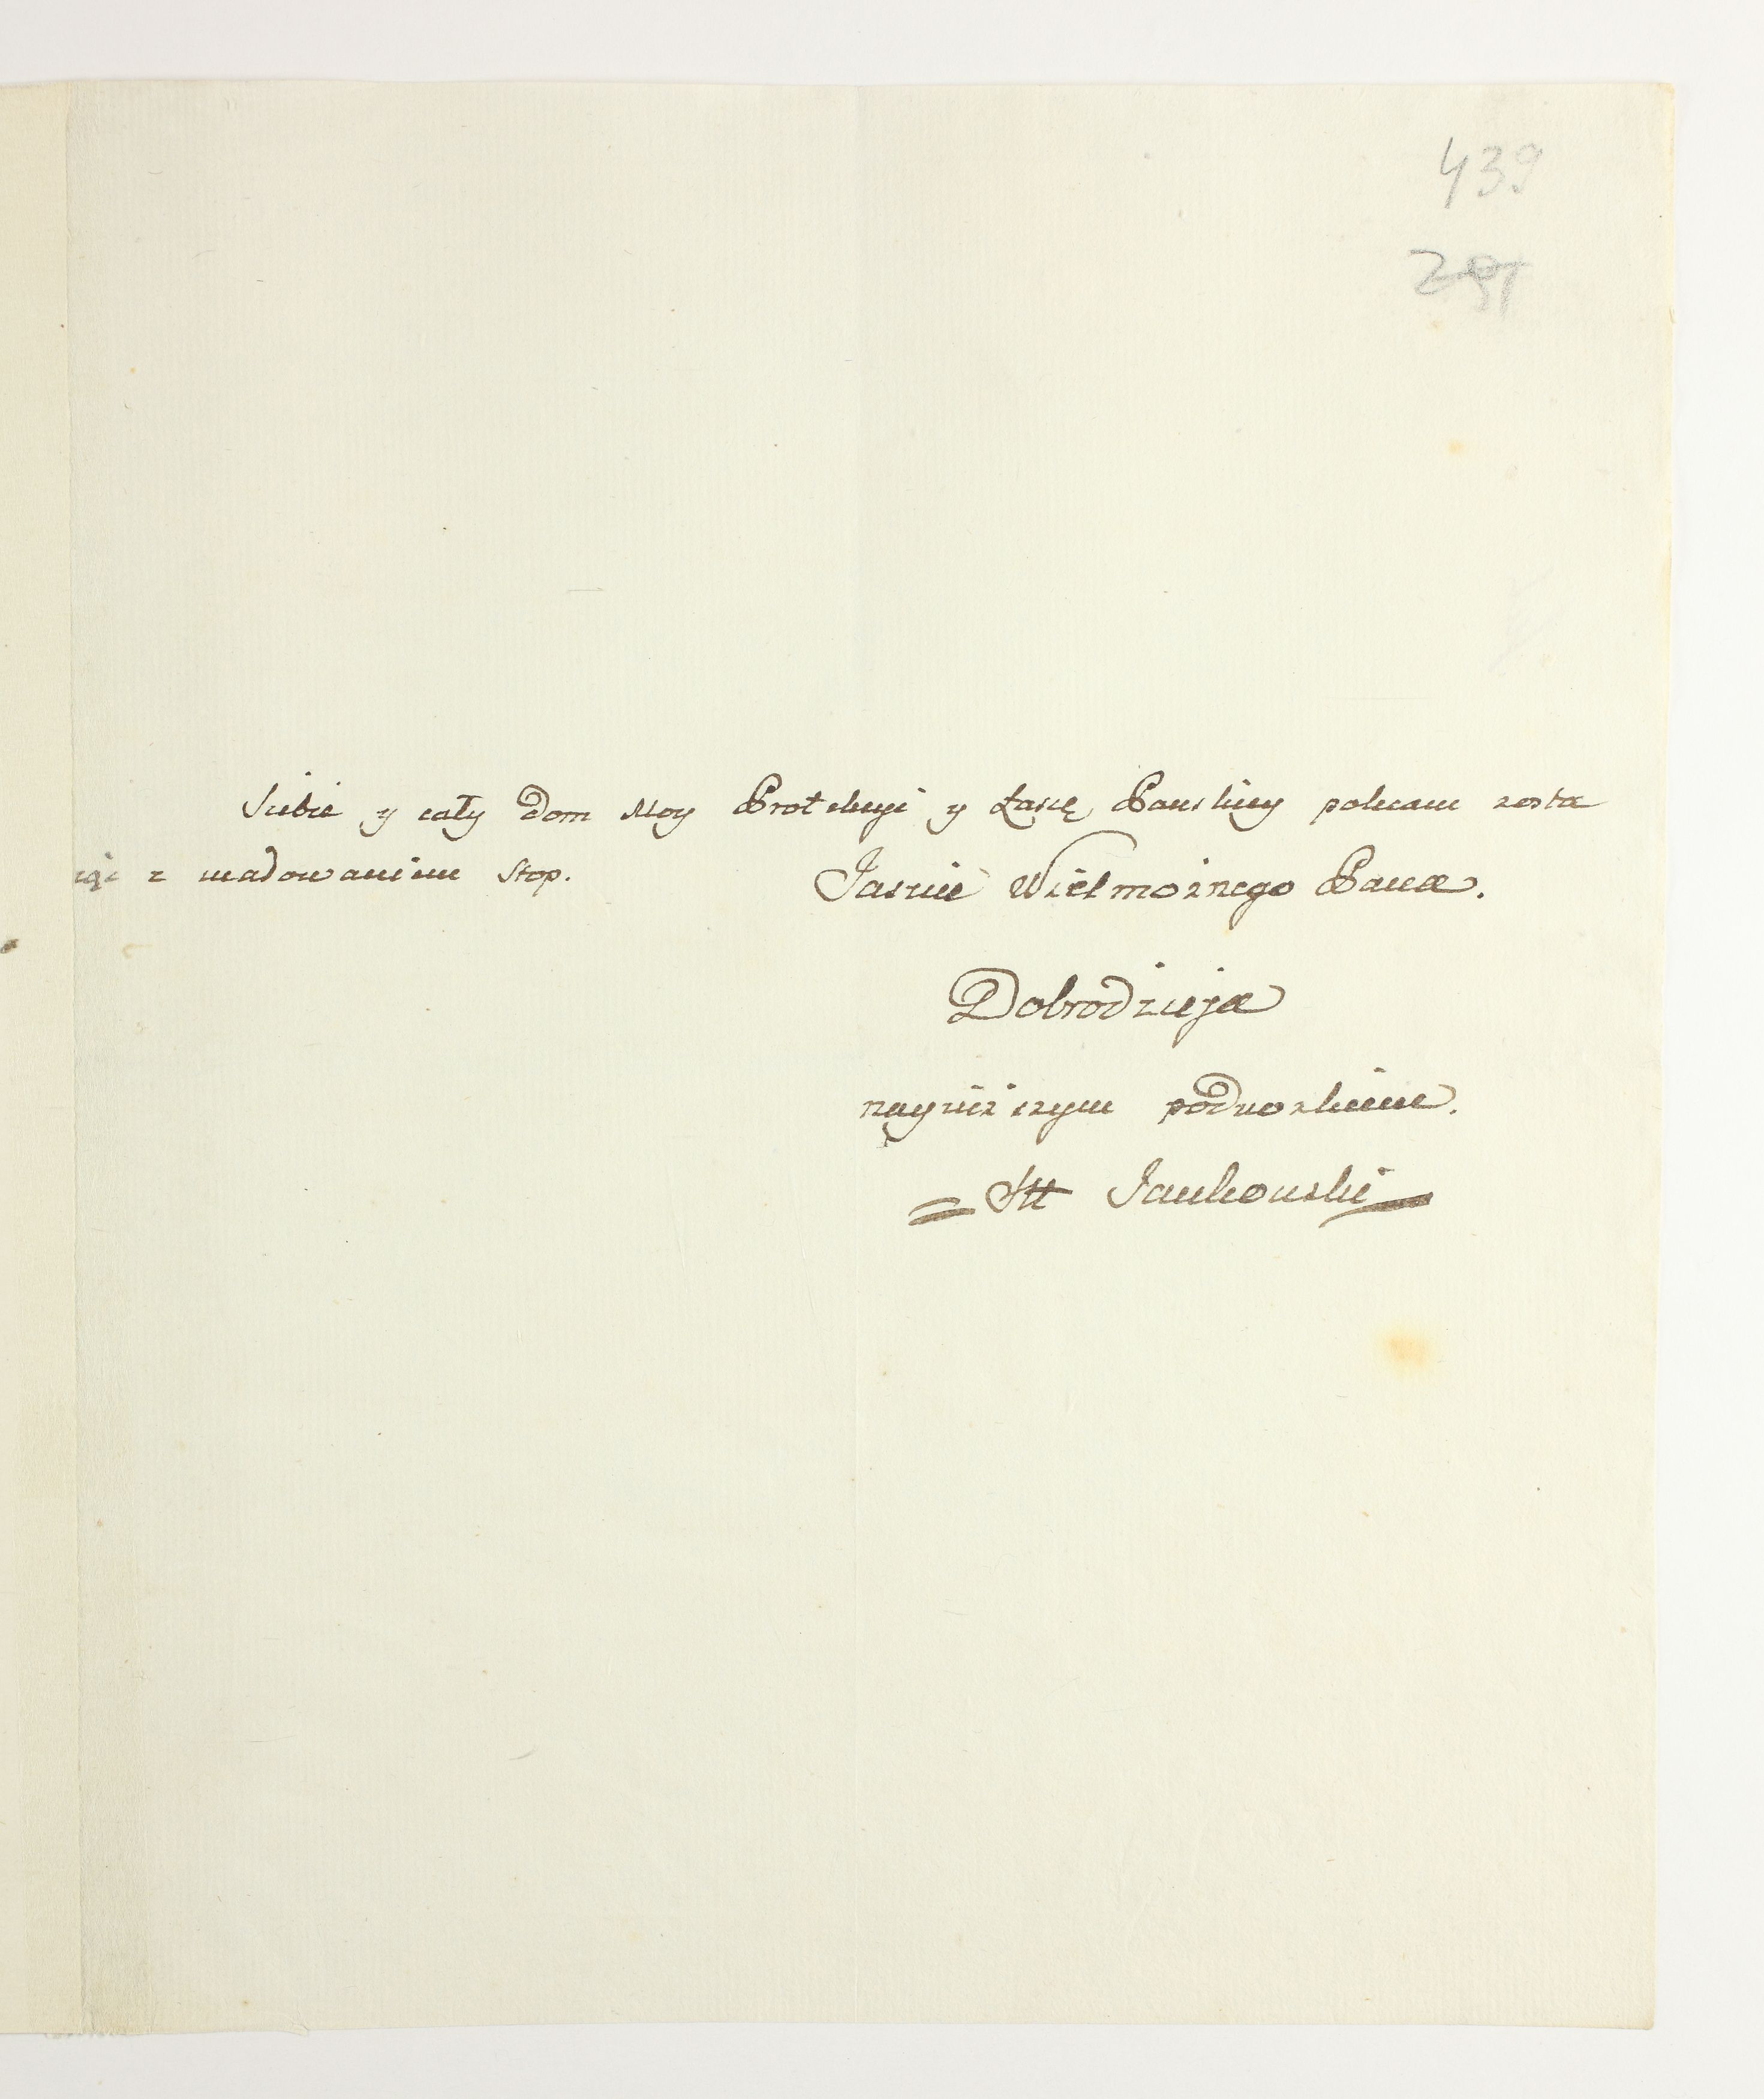 439
291
Siebie y cały Dom Moy Protekcyi y Łascę Panskiey polecam zosta
iąc z ucadowaniem Stop.
Jasnie Wielmożnego Pana.
Dobrodzieja
nayniższym podnozkiem.
Jankowski